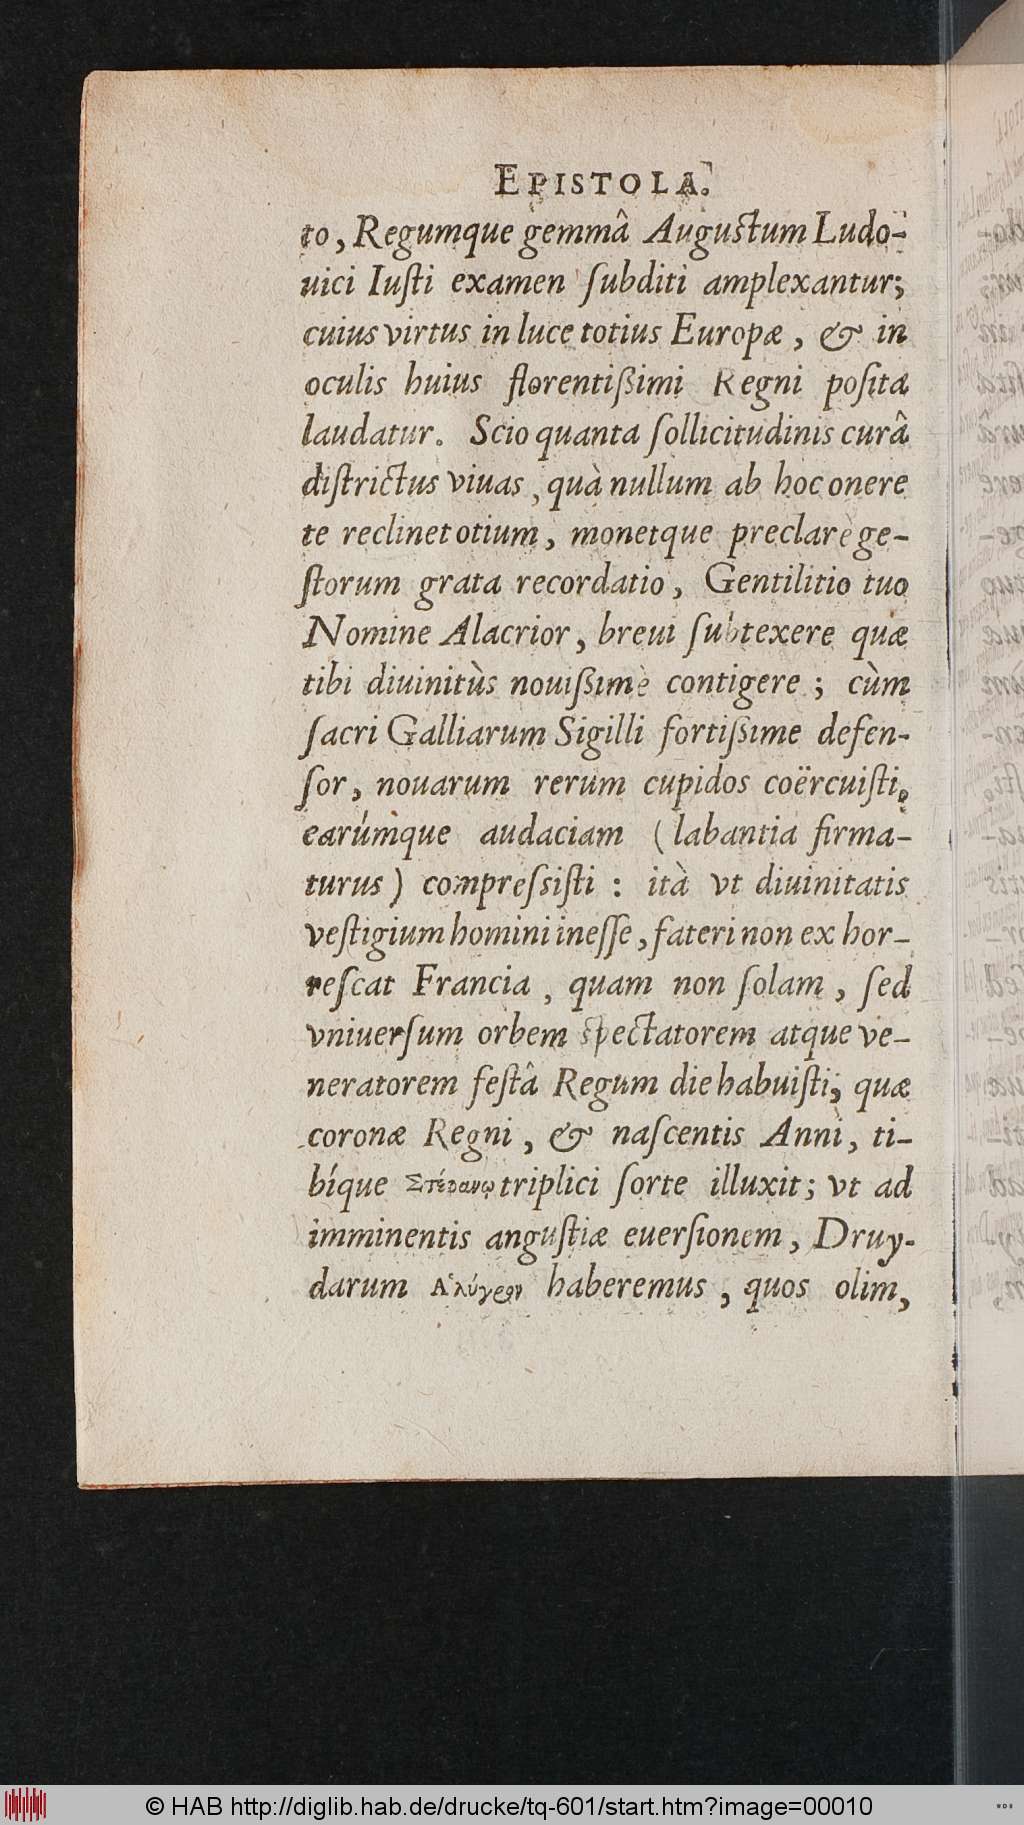 EPISTOLA.
to, Regumque gemmâ Augustum Ludo-
uici Iuſti examen ſubditi amplexantur;
cuius virtus in luce totius Europæ, & in
oculis huius florentißimi Regni poſita
laudatur. Scio quanta ſollicitudinis curâ
diſtrictus viuas, quà nullum ab hoc onere
te reclinet otium, monetque preclarè ge-
ſtorum grata recordatio, Gentilitio tuo
Nomine Alacrior, breui ſubtexere quæ
tibi diuinitùs nouißimè contigere; cùm
ſacri Galliarum Sigilli fortißime defen-
ſor, nouarum rerum cupidos coërcuiſti,
earúmque audaciam (labantia firma-
turus) compreſsiſti: ità vt diuinitatis
veſtigium homini ineſſe, fateri non ex hor-
reſcat Francia, quam non ſolam, ſed
vniuerſum orbem ſpectatorem atque ve-
neratorem feſtâ Regum die habuiſti, quæ
coronæ Regni, & naſcentis Anni, ti-
bíque Στέφανῳ triplici ſorte illuxit; vt ad
imminentis anguſtiæ euerſionem, Druy-
darum haberemus, quos olim,
© HAB http://diglib.hab.de/drucke/tq-601/start.htm?image=00010